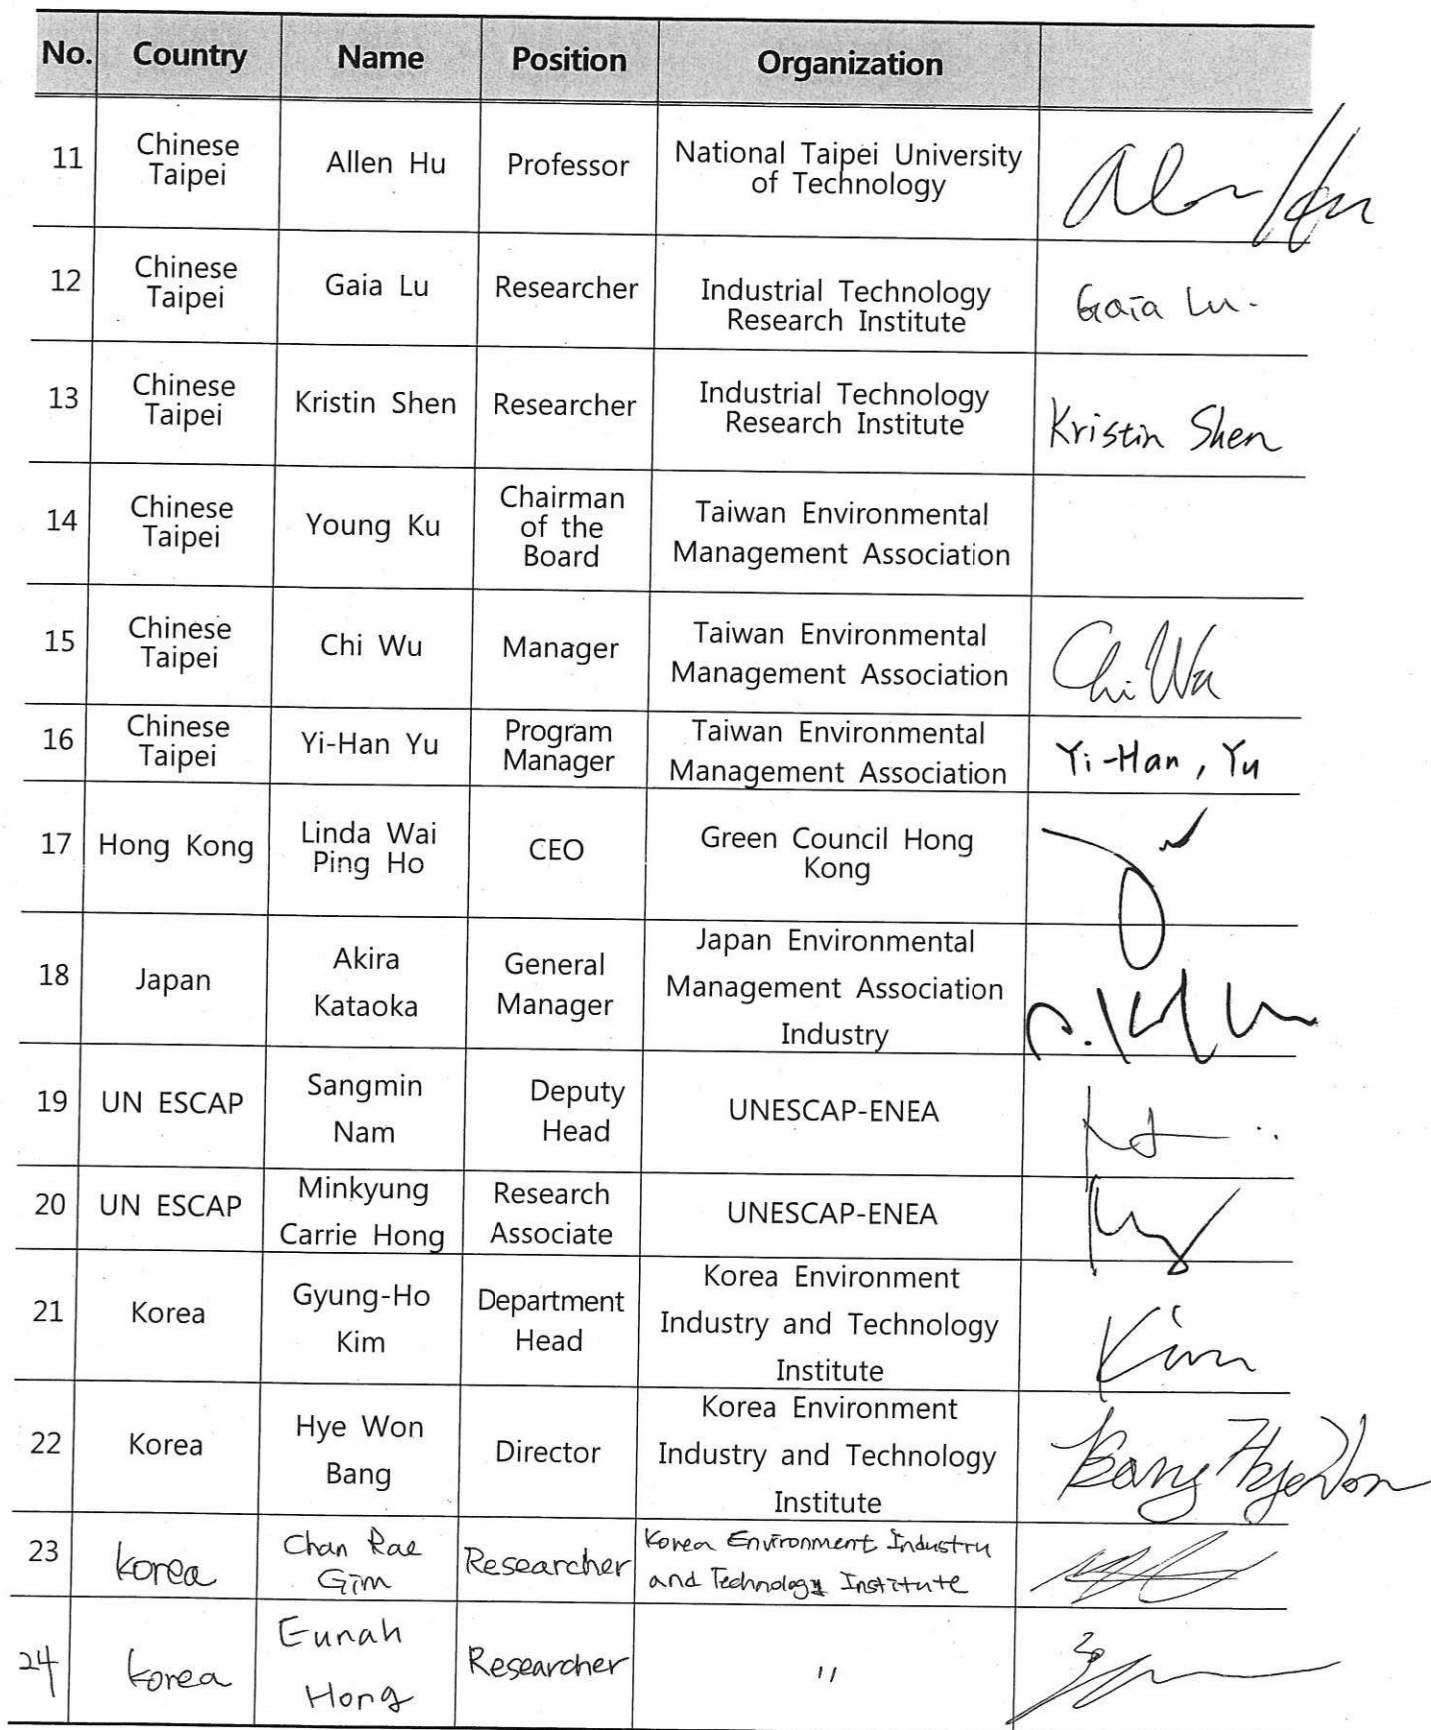 No. Country Name Position Organization
11 Chinese Taipei Allen Hu Professor National Taipei University of Technology Allen Hu
12 Chinese Taipei Gaia Lu Researcher Industrial Technology Research Institute Gaia Lu.
13 Chinese Taipei Kristin Shen Researcher Industrial Technology Research Institute Kristin Shen
14 Chinese Taipei Young Ku Chairman of the Board Taiwan Environmental Management Association
15 Chinese Taipei Chi Wu Manager Taiwan Environmental Management Association Chi Wu
16 Chinese Taipei Yi-Han Yu Program Manager Taiwan Environmental Management Association Yi-Han, Yu
17 Hong Kong Linda Wai Ping Ho CEO Green Council Hong Kong
18 Japan Akira Kataoka General Manager Japan Environmental Management Association Industry
19 UN ESCAP Sangmin Nam Deputy Head UNESCAP-ENEA
20 UN ESCAP Minkyung Carrie Hong Research Associate UNESCAP-ENEA
21 Korea Gyung-Ho Kim Department Head Korea Environment Industry and Technology Institute Kim
22 Korea Hye Won Bang Director Korea Environment Industry and Technology Institute Bang HyeWon
23 korea Chan Rae Gim Researcher Korea Environment Industry and Technology Institute
24 korea Eunah Hong Researcher "